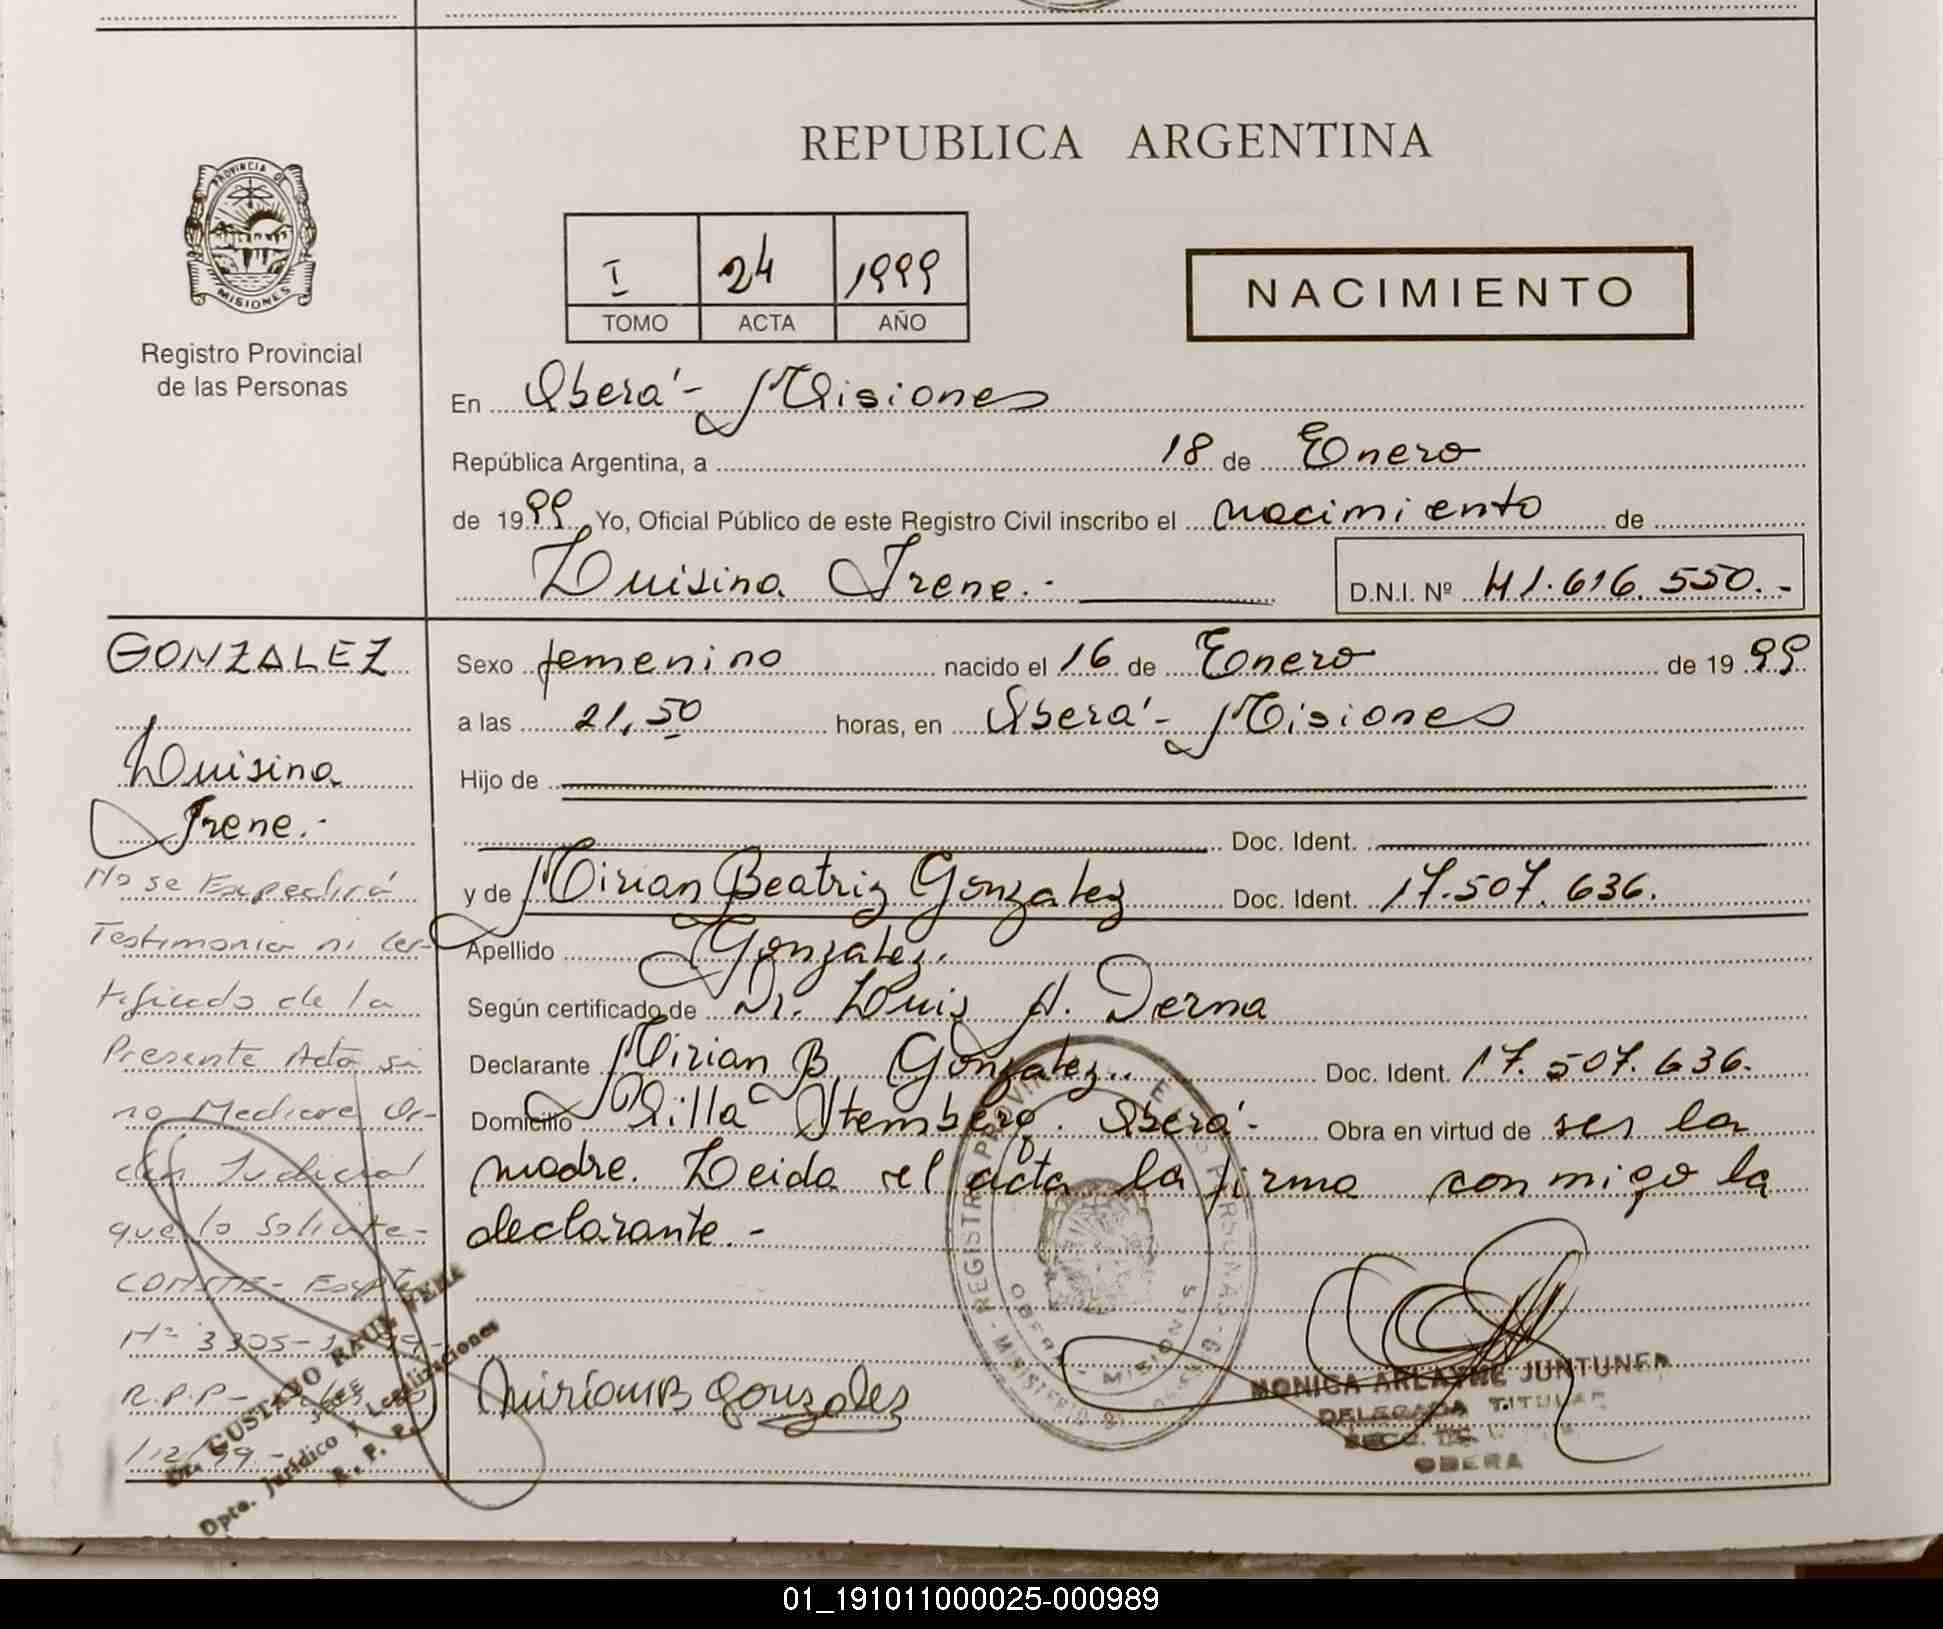 REPUBLICA ARGENTINA
PROVINCIA DE
MISIONES
Registro Provincial
de las Personas
I 24 1999
TOMO ACTA AÑO
NACIMIENTO
En Oberá - Misiones
República Argentina, a 18 de Enero
de 1999 Yo, Oficial Público de este Registro Civil inscribo el nacimiento de
Luisina Irene.- D.N.I. Nº 41.616.550.-
GONZALEZ
Luisina
Irene.-
No se Expedirá
Testimonio ni Cer-
tificado de la
Presente Acta si
no Mediare Or-
den Judicial
que lo Solicite-
CONSTE- Expte
Nº 3305-
R.P.P-
/12/99.-
Dr. GUSTAVO RAUL
JEFE
Dpto. Jurídico y Legalizaciones
R. P. P.
Sexo femenino nacido el 16 de Enero de 1999
a las 21,50 horas, en Oberá - Misiones
Hijo de
Doc. Ident.
y de Mirian Beatriz Gonzalez Doc. Ident. 17.507.636.
Apellido Gonzalez.
Según certificado de Dr. Luis A. Derna
Declarante Mirian B. Gonzalez.. Doc. Ident. 17.507.636.
Domicilio Villa Stemberg. Oberá.- Obra en virtud de ser la
madre. Leida el acta la firma conmigo la
declarante.-
MirianB Gonzalez
MONICA ARLAYNE JUNTUNEN
DELEGADA TITULAR
OBERA
01_191011000025-000989